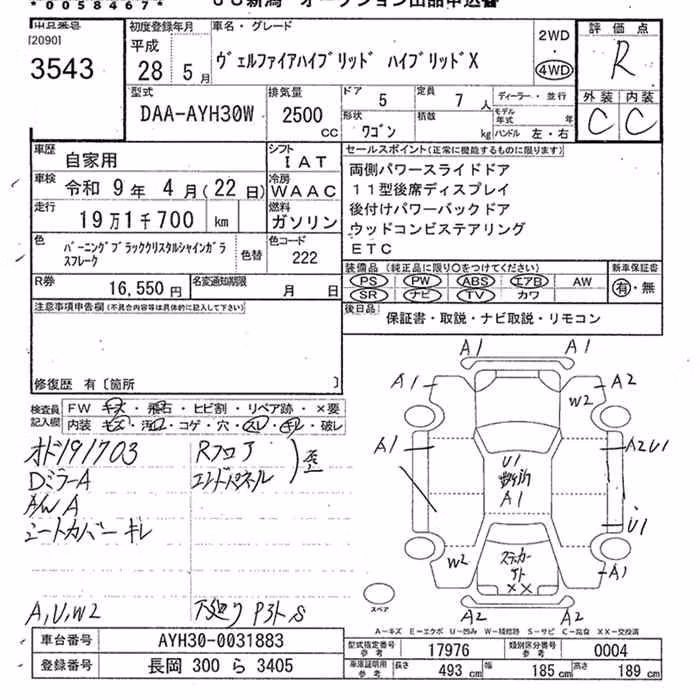 *0058467*
JU新潟 オークション出品申込書
[2090]
3543
初度登録年月
平成
28 5月
車名・グレード
ヴェルファイアハイブリッド ハイブリッドX
2WD
4WD
評価点
R
外装 内装
C C
型式
DAA-AYH30W
排気量
2500
CC
ドア 5
定員 7人
形状 ワゴン
積数 kg
ディーラー・並行
モデル年式 年
ハンドル 左・右
車歴 自家用
シフト IAT
車検 令和 9年 4月(22日)
冷房 WAAC
走行 19万1千700 km
燃料 ガソリン
色 バーニングブラッククリスタルシャインガラスフレーク
色替
色コード 222
セールスポイント(正常に機能するものに限ります)
両側パワースライドドア
11型後席ディスプレイ
後付けパワーバックドア
ウッドコンビステアリング
ETC
R券 16,550円
名変通知期限 月 日
装備品(純正品に限り〇をつけてください)
PS PW ABS エアB AW
SR ナビ TV カワ
新車保証書
有・無
後日品 保証書・取説・ナビ取説・リモコン
注意事項申告欄(不具合内容等は具体的に記入して下さい)
修復歴 有〔箇所 〕
検査員記入欄
FW キズ・飛石・ヒビ割・リペア跡・×要
内装 キズ・汚口・コゲ・穴・スレ・キレ・破レ
オド191703
DミラーA
A/W A
シートカバー キレ
Rフロア
エンドパネル
A,U,W2
下廻り
A1 A1
A1 A2
W2
A1 A2U1
U1
A1
U1
W2 A1
ステッカー
××
A2 A2
スペア
A-キズ E-エクボ U-凹み W-補修跡 S-サビ C-腐食 XX-交換済
車台番号 AYH30-0031883
登録番号 長岡 300 ら 3405
型式指定番号 参考 17976
類別区分番号 参考 0004
車庫証明用 参考 長さ 493 cm 幅 185 cm 高さ 189 cm